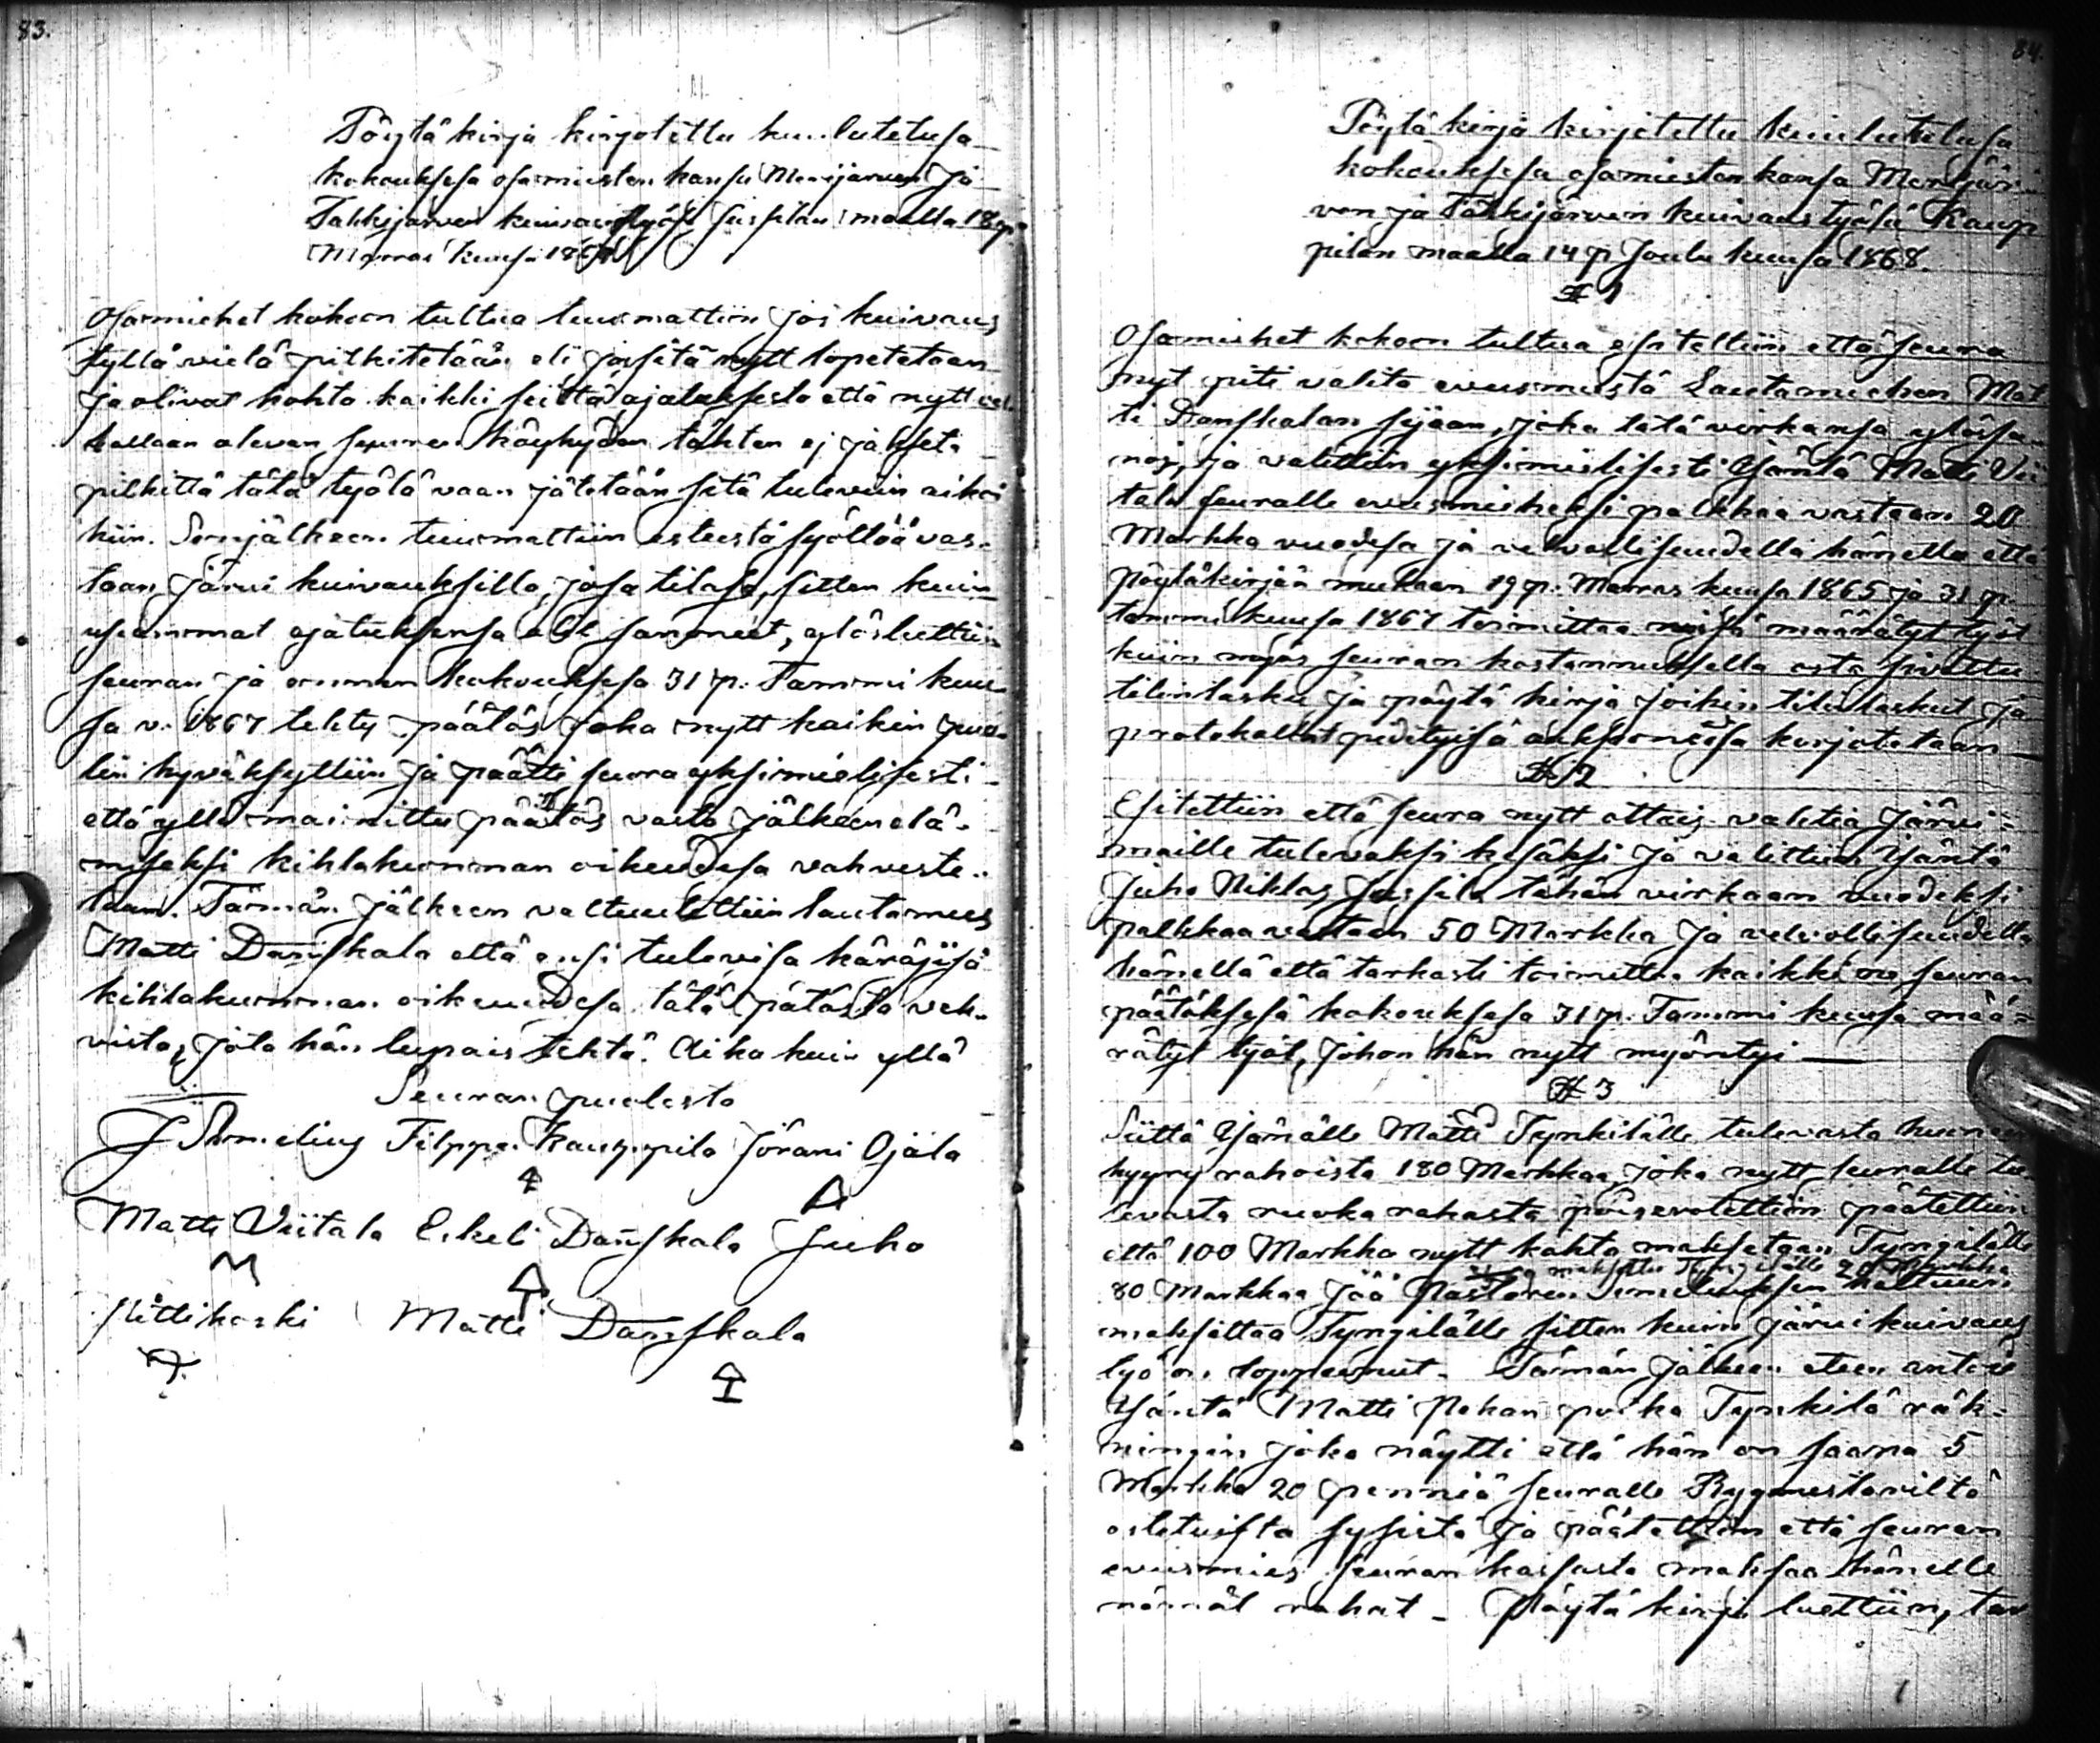 83.
Pöytä kirja kirjotettu kuulutetusa
kokouksesa osamiesten kansa Merijärven ja
Tähkijärven kuivaustyösä Juspilan maalla 18 p.
Marras kuusa 1867
Osamiehet kokoon tultua tuumattiin jos kuivaus
työtä vielä pitkitetään eli jos sitä nytt lopetetaan
ja olivat kohta kaikki siittä ajatuksesta että nytt val-
lallaan olevan suuren köyhyden tähten ej jakseta
pitkittä tätä työtä vaan jätetään sitä tuleviin aikoi
hiin. Senjälkeen tuumattiin esteestä syöttöä vas-
taan järvi kuivauksilla, josa tilasa, sitten kuin
useammat ajatuksensa olit sanoneet, ylösluettiin
seuran ja amman kokouksesa 31 p: Tammi kuu-
sa v. 1867 tehty päätös joka nytt kaikin puo-
lin hyväksyttiin ja päätti seura yksimielisesti
että yllä mainittu päätös vasta jälkeenelä-
miseksi kihlakunnan oikeudesa vahviste-
taan. Tämän jälkeen valtuutettiin lautamies
Matti Danskala että ensi tulevisa käräjisä
kihlakunnan oikeudesa tätä pätöstä vah-
vistaa, jota hän lupais tehtä. Aika kuin yllä
Seuran puolesta
J Simelius Filppa Kauppila Jörani Ojala
Matti Viitala Erkeli Danskala Juho
slittikoski Matti Danskala
84.
Pöytä kirja kirjotettu kuulutetusa
kokouksesa osamiesten kansa Merijär-
ven ja Tähkijärven kuivaus työsä Kaup
pilan maalla 14 p Joulu kuusa 1868.
§ 1
Osamiehet kokoon tultua esitettiin että seura
nyt piti valita evusmiestä Lautamiehen Mat
ti Danskalan sijaan, joka tätä virkansa ylössa-
noj, ja valittiin yksimielisesti Isäntä Matti Vii
tala seuralle evusmieheksi palkkaa vastaan 20
Markka vuodesa ja velvollisuudella hänellä että
pöytäkirjän mukaan 19 p. Marras kuusa 1865 ja 31 p.
tammi kuusa 1867 toimittaa niisä määrätyt työt
kuin myös seuran kostannuksella osta sivoittu
tilintasku ja pöytä kirja joihin tilin laskut ja
protokollat pidityisä auksioneisa kirjotetaan
§ 2
Esitettiin että seura nytt ottais vahtia järvi=
maille tulevaksi kesäksi ja valittiin Isäntä
Juho Niklas Juspila tähän virkaan vuodeksi
palkkaa vastaan 50 Markka ja velvollisuudella
hänellä että tarkasti toimittaa kaikki ne seuran
päätöksesä kokouksesa 31 p. Tammi kuusa mää=
rätyt työt, johon hän nytt myöntyi
§ 3
Siittä Isänälle Matti Tynkilälle tulevasta huoneen
hyyry rahoista 180 Markkaa, joka nytt seuralle tu-
levasta ruoka rahasta poiserotettiin päätettiin
että 100 Markka nytt kohta maksetaan Tyngilälle
maksettu Tyngilälle 20 Markka
80 Markkaa jää Pastoren Simeliuksen haltuun
maksattaa Tyngilälle sitten kuin järvi kuivaus
työ on loppunut. Tämän jälkeen eteen antoi
Isäntä Matti Pekan poika Tynkilä räk=
ningin joka näytti että hän on saana 5
Markka 20 penniä seuralle Rygmestariltä
ostetuista sysistä ja päätettiin että seuran
evusmies seuran kassasta maksaa hänelle
nämät rahat - Pöytä kirja luettiin, tar